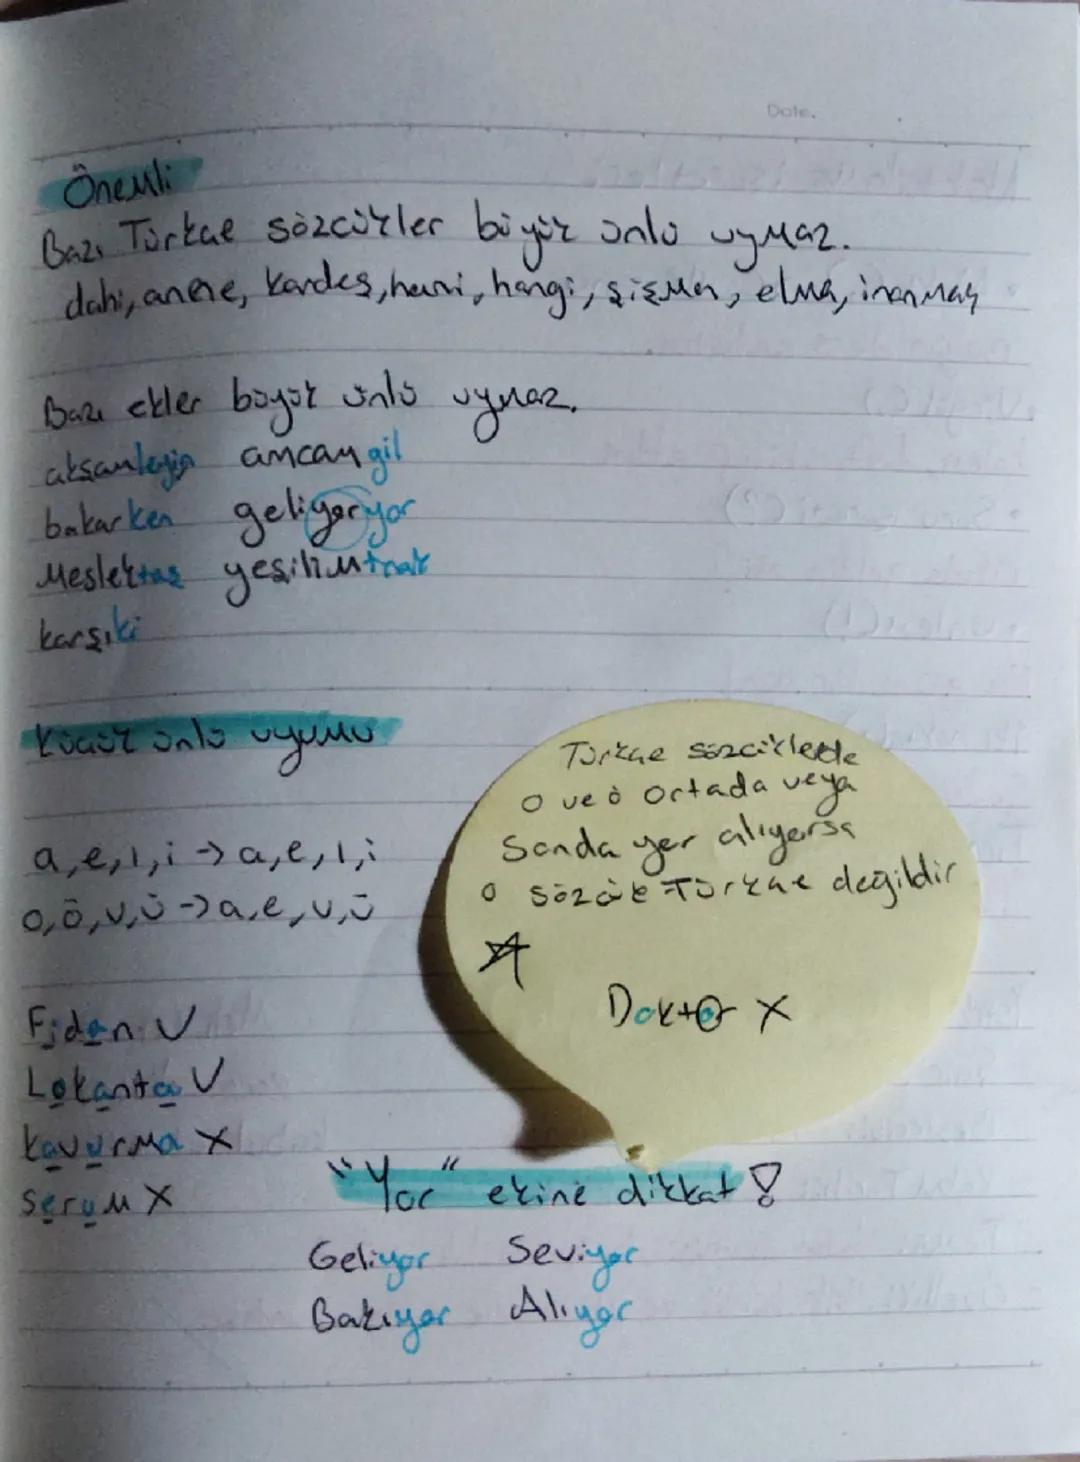 Date.
Önemli
Bazı Türkçe sözcükler büyük ünlü uymaz.
dahi, anne, kardeş, hani, hangi, şişman, elma, inanmaş
Bazı ekler büyük ünlü uymaz.
akşamleyin amcamgil
bakarken geliyoryor
Meslektaş yeşilimtrak
karşıki
Küçük ünlü uyumu
a, e, ı, i -> a, e, ı, i
o, ö, u, ü -> a, e, u, ü
Fidan ✓
Lokanta ✓
Kavurma X
Serum X
Türkçe sözcüklerde
o ve ö ortada veya
Sonda yer alıyorsa
o sözcük Türkçe değildir
☆
Doktor X
"Yor" ekine dikkat !
Geliyor Seviyor
Bakıyor Alıyor